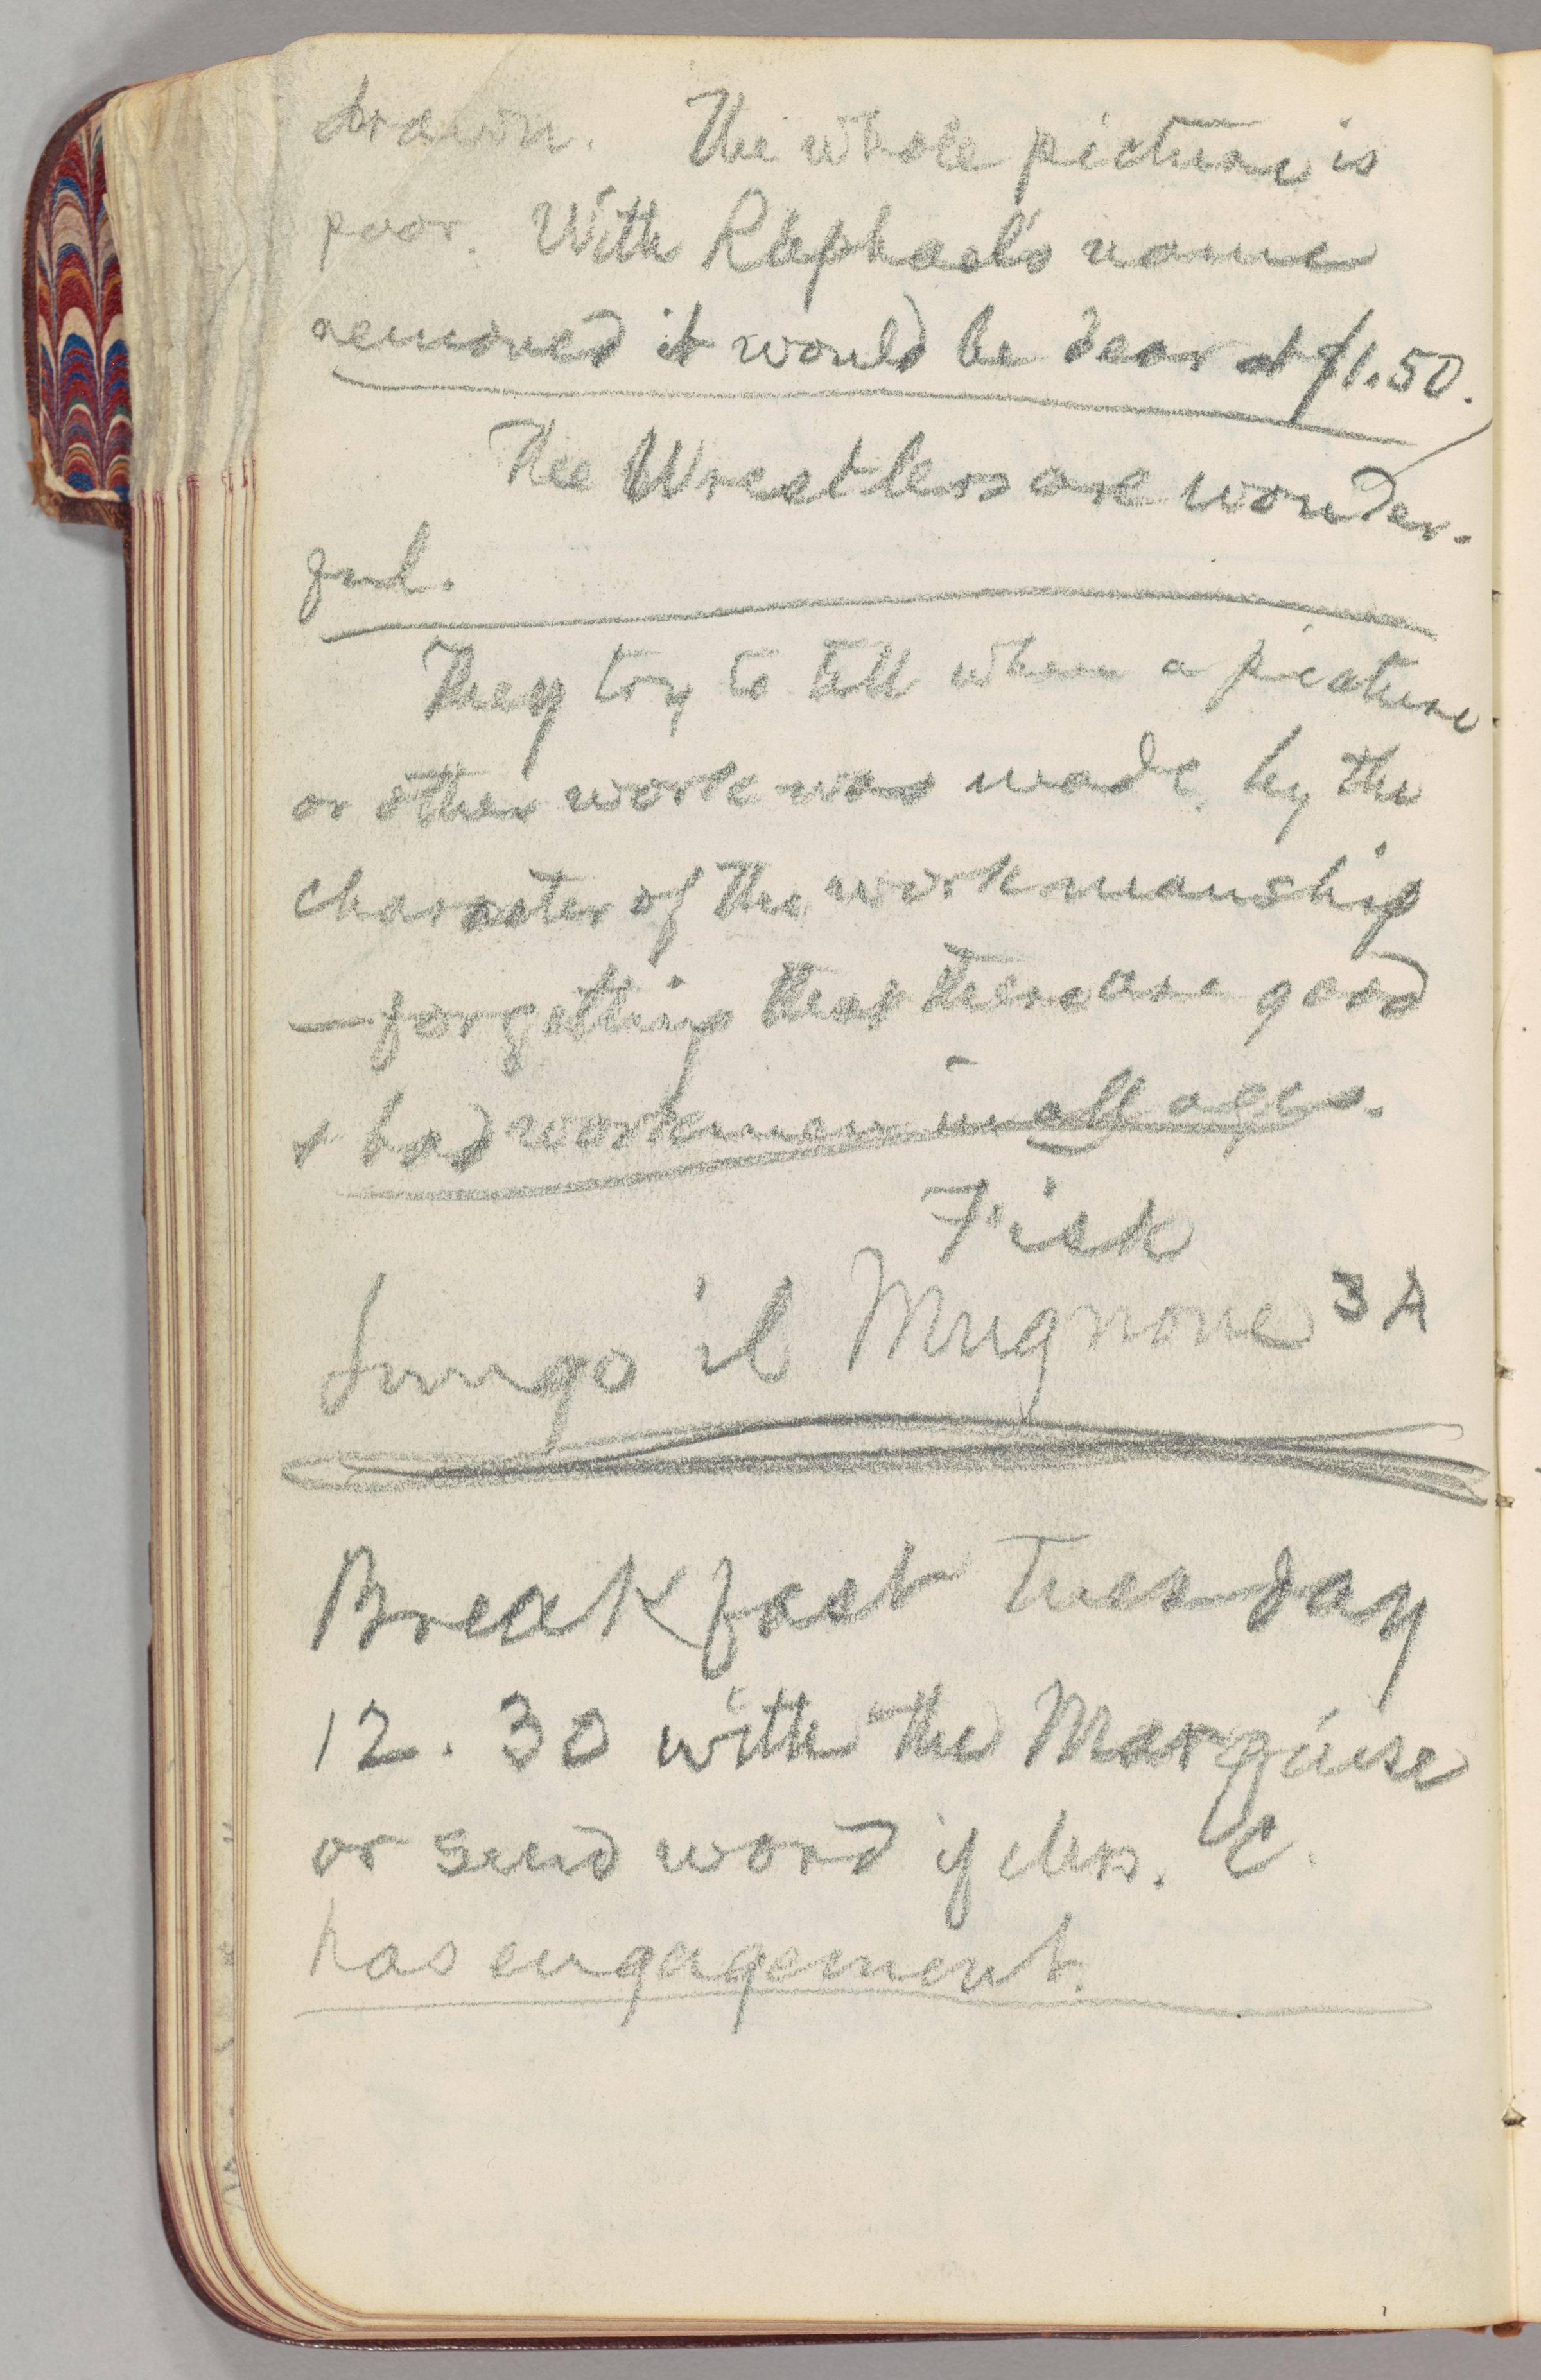 drawn. The whole picture is
poor. With Raphael's name
removed it would be dear at $1.50.
The Wrestlers are wonder-
ful.
They try to tell when a picture
or other work was made, by the
character of the workmanship
—forgetting that there are good
& bad workmen in all ages.
Fisk
Lungo il Mugnone 3A
Breakfast Tuesday
12.30 with the Marquise
or send word if Mrs. C.
has engagement.